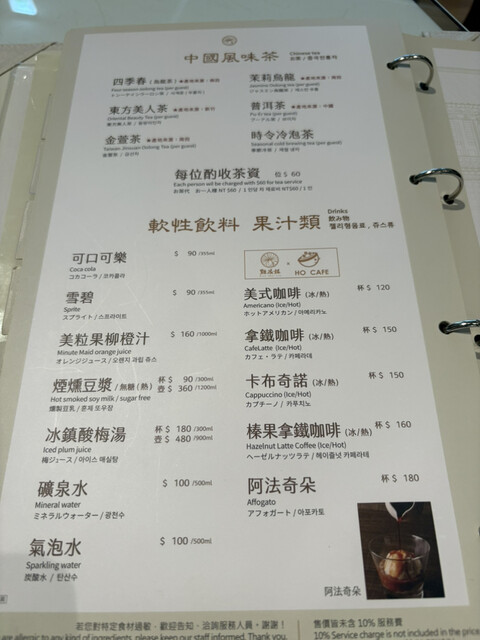 中國風味茶 Chinese tea
四季春 (烏龍茶)
Four season oolong tea (per guest)
東方美人茶
Oriental Beauty Tea (per guest)
金萱茶
Taiwan Jinxuan Oolong Tea (per guest)
茉莉烏龍
Jasmine Oolong tea (per guest)
普洱茶
Pu Er tea (per guest)
時令冷泡茶
Seasonal cold brewing tea (per guest)
每位酌收茶資 位 $ 60
Each person will be charged with $60 for tea service
軟性飲料 果汁類 Drinks
飲み物
可口可樂 $ 90 /355ml
Coca cola
コカコーラ / 코카콜라
雪碧 $ 90 /355ml
Sprite
スプライト / 스프라이트
美粒果柳橙汁 $ 160 /1000ml
Minute Maid orange juice
オレンジジュース / 오렌지 과립 쥬스
煙燻豆漿 / 無糖 (熱) 杯 $ 90 /300ml
壺 $ 360 /1200ml
Hot smoked soy milk / sugar free
燻製豆乳 / 훈제 또우장
冰鎮酸梅湯 杯 $ 180 /300ml
壺 $ 480 /900ml
Iced plum juice
梅ジュース / 아이스 매실탕
礦泉水 $ 100 /500ml
Mineral water
ミネラルウォーター / 광천수
氣泡水 $ 100 /500ml
Sparkling water
炭酸水 / 탄산수
HO CAFE
美式咖啡 (冰/熱) 杯 $ 120
Americano (Ice/Hot)
ホットアメリカン / 아메리카노
拿鐵咖啡 (冰/熱) 杯 $ 150
CafeLatte (Ice/Hot)
カフェ・ラテ / 카페라테
卡布奇諾 (冰/熱) 杯 $ 150
Cappuccino (Ice/Hot)
カプチーノ / 카푸치노
榛果拿鐵咖啡 (冰/熱) 杯 $ 160
Hazelnut Latte Coffee (Ice/Hot)
ヘーゼルナッツラテ / 헤이즐넛 카페라테
阿法奇朵 杯 $ 180
Affogato
アフォガート / 아포카토
阿法奇朵
若您對特定食材過敏，歡迎告知、洽詢服務人員。謝謝！
are allergic to any kind of ingredients, please keep our staff informed. Thank you.
售價皆未含 10% 服務費
10% Service charge is not included in the price